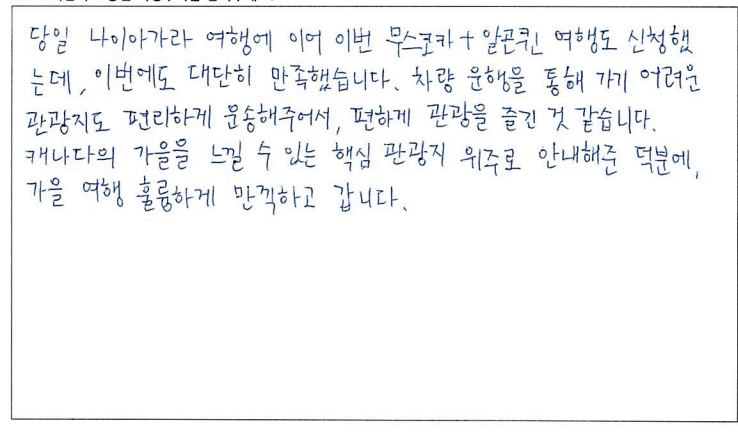 당일 나이아가라 여행에 이어 이번 무스코카 + 알곤퀸 여행도 신청했
는데, 이번에도 대단히 만족했습니다. 차량 운행을 통해 가기 어려운
관광지도 편리하게 운송해주어서, 편하게 관광을 즐긴 것 같습니다.
캐나다의 가을을 느낄 수 있는 핵심 관광지 위주로 안내해준 덕분에,
가을 여행 훌륭하게 만끽하고 갑니다.